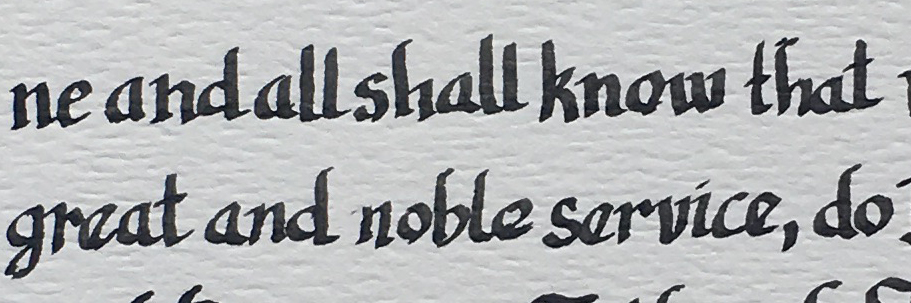 ne and all shall know that
great and noble service, do